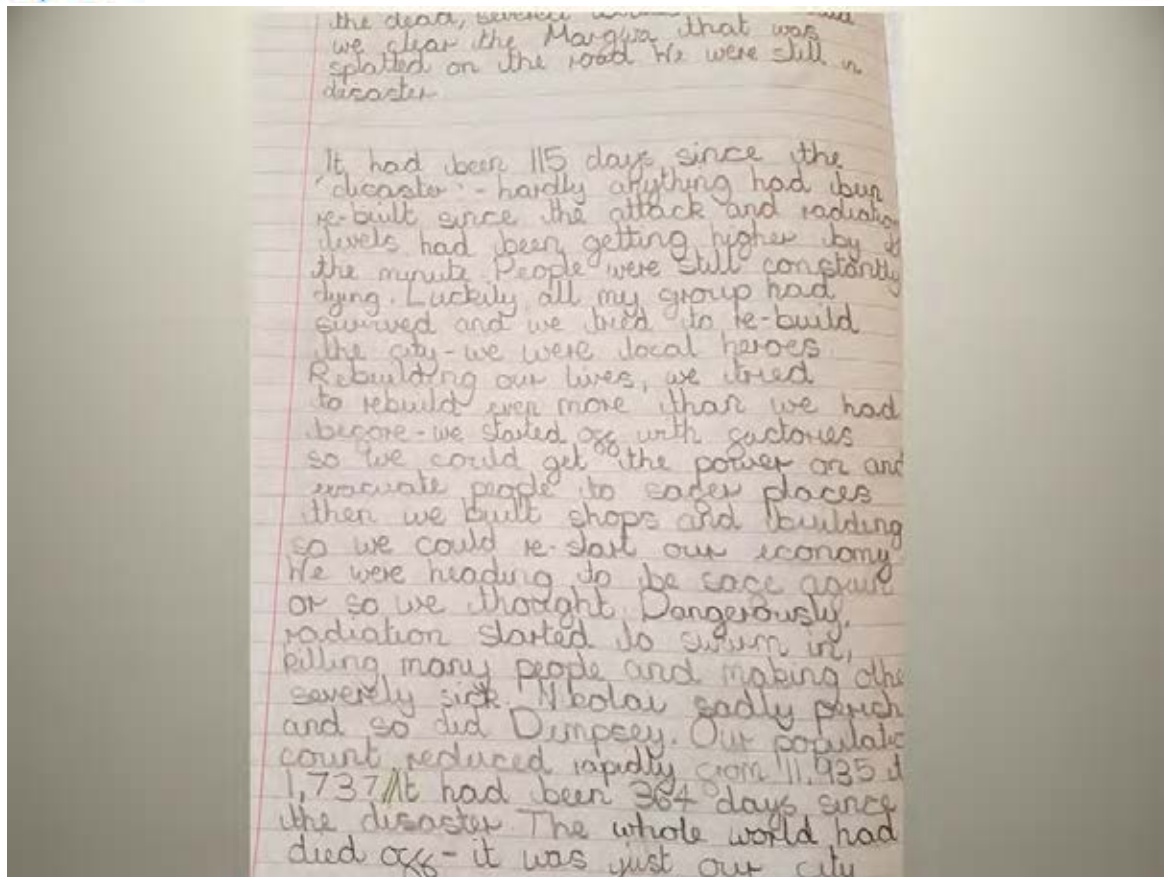 the dead,
we clear the Margwa that was
splatted on the road We were still in
disaster
It had been 115 days since the
'dicaster' - hardly anything had been
re-built since the attack and radiation
levels had been getting higher by
the minute. People were still constantly
dying. Luckily all my group had
survived and we tried to re-build
the city - we were local heroes.
Rebuilding our lives, we tried
to rebuild even more than we had
before - we started off with factories
so we could get the power on and
evacuate people to safer places
then we built shops and building
so we could re-start our economy
We were heading to be safe again
or so we thought. Dangerously,
radiation started to swurm in,
killing many people and making othe
severely sick. Nikolai sadly perish
and so did Dempsey. Our populatio
count reduced rapidly from 11,935
1,737 // It had been 364 days since
the disaster. The whole world had
died off - it was just our city